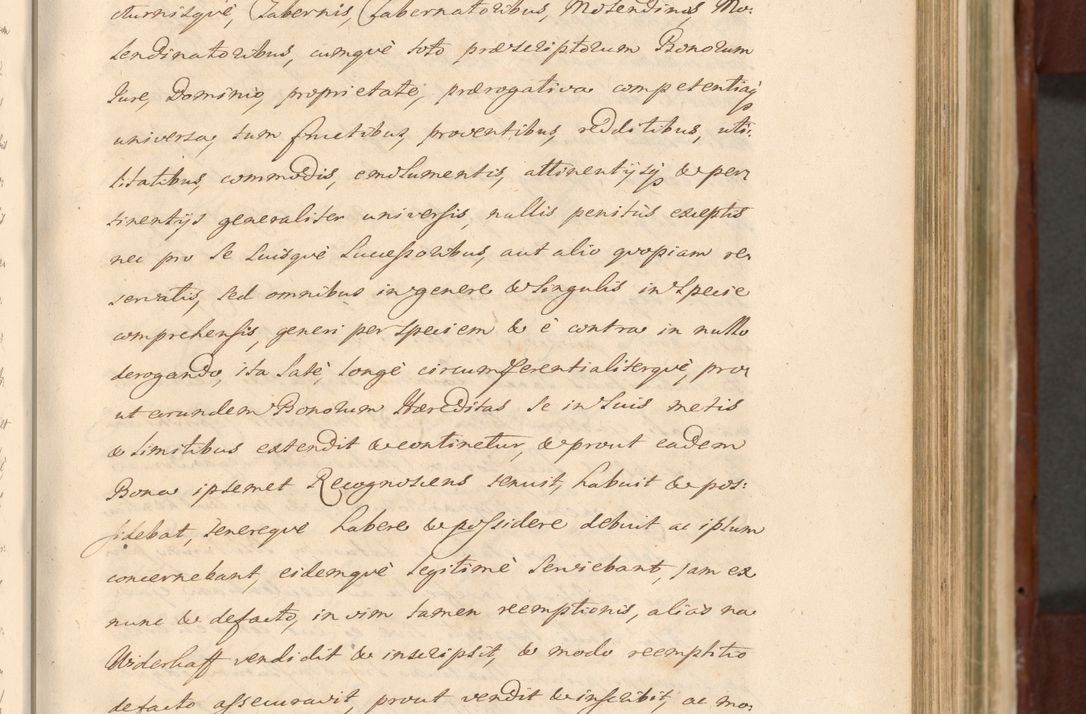 cturnisquè, Tabernis, Tabernatoribus, Molendinis, Mo:
lendinatoribus, cumquè toto præscriptorum Bonorum
Jure, Dominio, proprietate, prærogativa competentiaq
universa, tum fructibus, proventibus, redditibus, uti:
litatibus, commodis, emolumentis, attinentijsq & per
tinentijs generaliter universis, nullis penitùs exceptis
nec pro se suisquè Successoribus, aut alio quopiam re
servatis, sed omnibus in genere & singulis in specie
comprehensis, generi per speciem & è contra in nullo
derogando, ita latè, longè circumferentialiterquè, pro
ut earundem Bonorum Hæreditas se in suis metis
& limitibus extendit & continetur, & prout eadem
Bona ipsemet Recognoscens tenuit, habuit & pos:
sidebat, tenerequè habere & possidere debuit ac ipsum
concernebant, eidemquè legitimè serviebant, jam ex
nunc & defacto, in vim tamen reemptionis, alias na
Widerkaff vendidit & inscripsit, & modo reemptitio
defacto assecuravit, prout vendit & inscribit, ac mo: